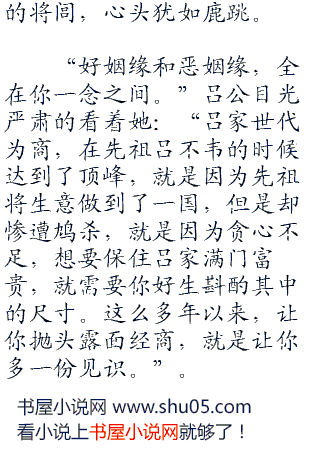 的将间，心头犹如鹿跳。
“好姻缘和恶姻缘，全
在你一念之间。”吕公目光
严肃的看着她：“吕家世代
为商，在先祖吕不韦的时候
达到了顶峰，就是因为先祖
将生意做到了一国，但是却
惨遭鸠杀，就是因为贪心不
足，想要保住吕家满门富
贵，就需要你好生斟酌其中
的尺寸。这么多年以来，让
你抛头露面经商，就是让你
多一份见识。”。
书屋小说网 www.shu05.com
看小说上书屋小说网就够了！